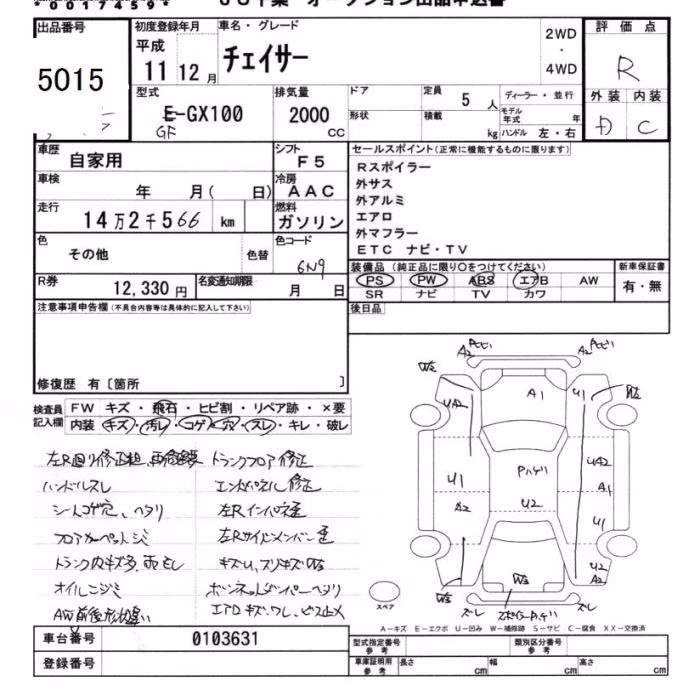 *00174594*
出品番号
5015
初度登録年月
平成
11 12 月
車名・グレード
チェイサー
2WD
・
4WD
評価点
R
外装 内装
C
型式
E-GX100
GF
排気量
2000
CC
ドア
形状
定員
5 人
積載
kg
ディーラー・並行
モデル年式 年
ハンドル 左・右
車歴
自家用
シフト
F5
車検
年 月( 日)
冷房
AAC
走行
14万2千566 km
燃料
ガソリン
色
その他
色替
色コード
6N9
R券
12,330 円
名変通知期限
月 日
セールスポイント(正常に機能するものに限ります)
Rスポイラー
外サス
外アルミ
エアロ
外マフラー
ETC ナビ・TV
装備品(純正品に限り〇をつけてください)
PS PW ABS エアB AW
SR ナビ TV カワ
新車保証書
有・無
後日品
注意事項申告欄(不具合内容等は具体的に記入して下さい)
修復歴 有〔箇所 〕
検査員記入欄
FW キズ・飛石・ヒビ割・リペア跡・×要
内装 キズ・汚レ・コゲ・穴・スレ・キレ・破レ
トランクフロア修正
ハンドルスレ
エンドパネル修正
シートコゲ穴、ヘタリ
左Rインパネ歪
フロアカーペットシミ
左Rサイドメンバー歪
オイルニジミ
AW前後形状違い
A2
A2
W2
UA2
A1
U1
U1
A2
Pハゲ
U2
UA2
A1
U1
U2
A2
W2
W2
ズレ
ズレ
スペア
A-キズ E-エクボ U-凹み W-補修跡 S-サビ C-腐食 XX-交換済
車台番号
0103631
登録番号
型式指定番号
参考
類別区分番号
参考
車庫証明用
参考
長さ cm
幅 cm
高さ cm